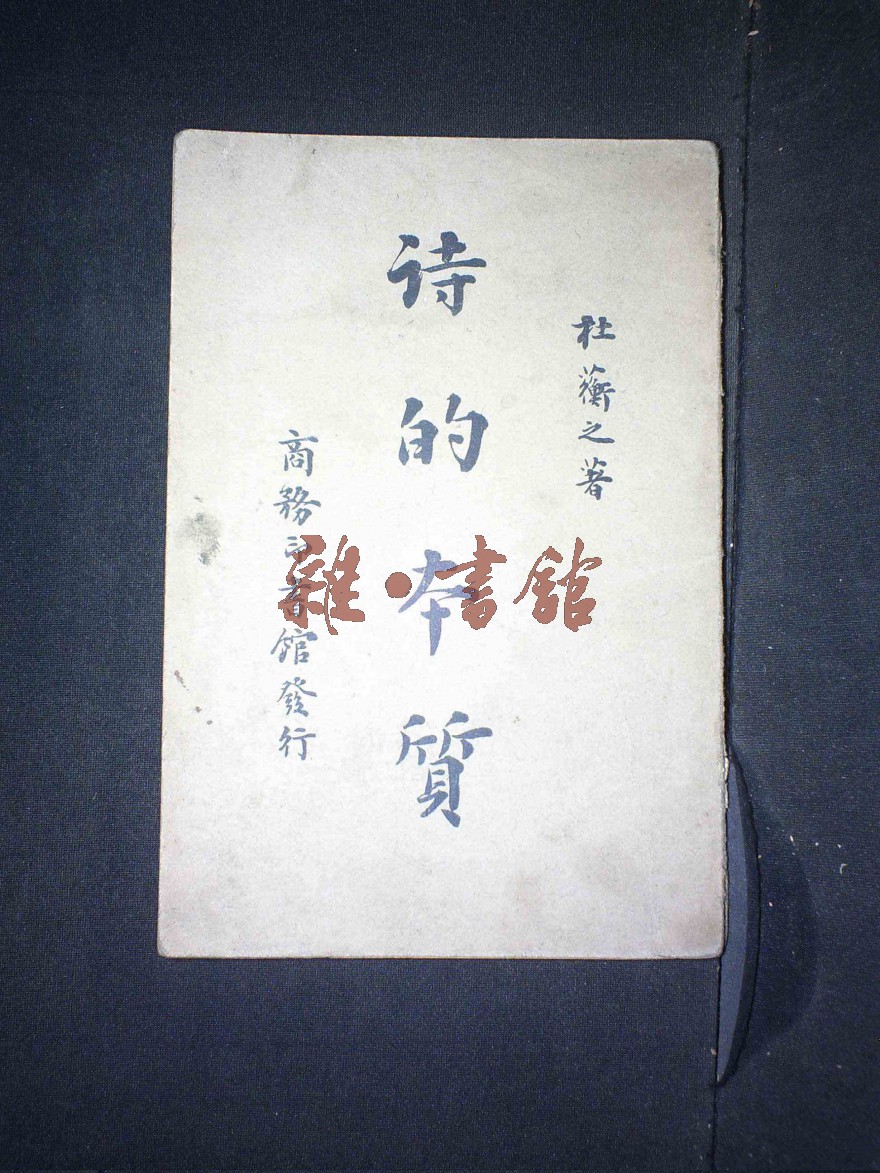 杜蘅之著
诗的本質
商務印書館發行
雜·書館